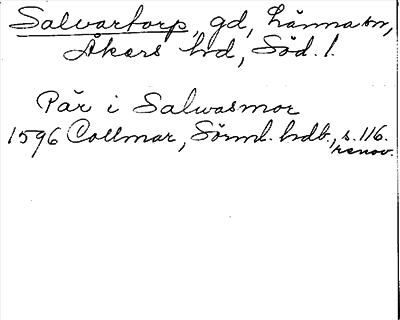 Salvartorp, gd, Länna sn,
Åkers hd, Söd. l.
Pär i Salwasmor
1596 Collmar, Sörml. hdb., s. 116.
renov.